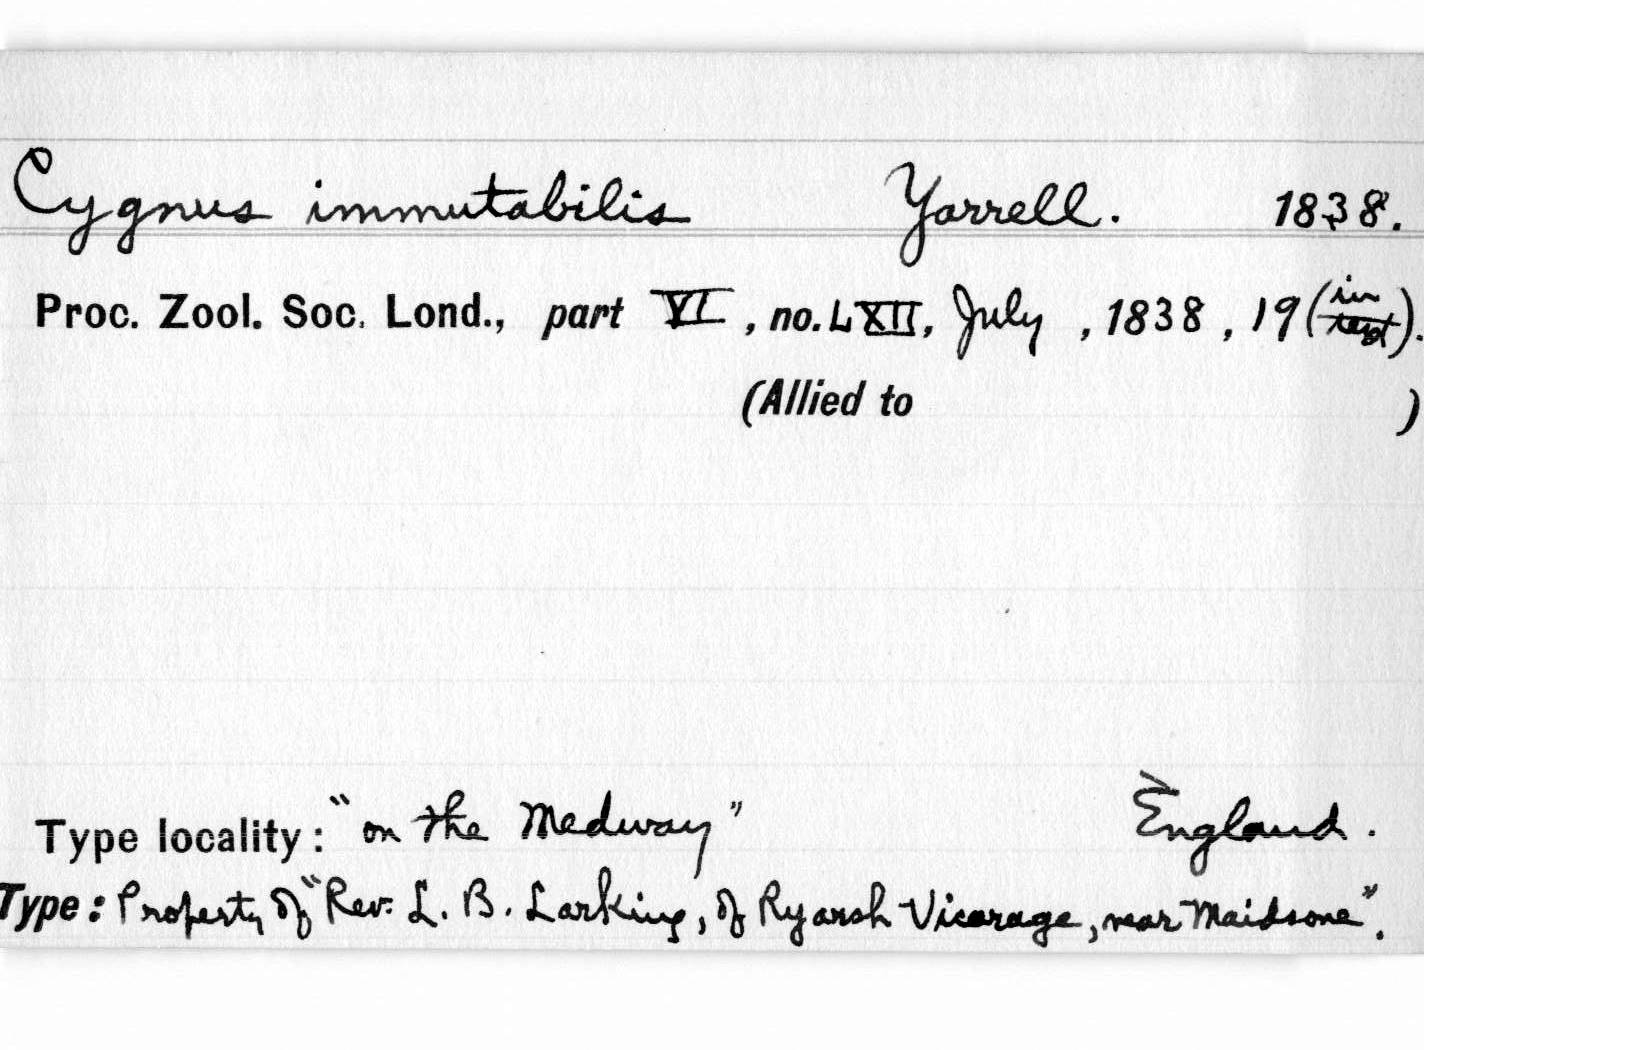 Cygnus immutabilis Yarrell. 1838.
Proc. Zool. Soc. Lond., part VI, no. LXII, July, 1838, 19 (in text).
(Allied to )
Type locality: "on the Medway" England.
Type: Property of "Rev. L. B. Larking, of Ryarsh Vicarage, near Maidsone".